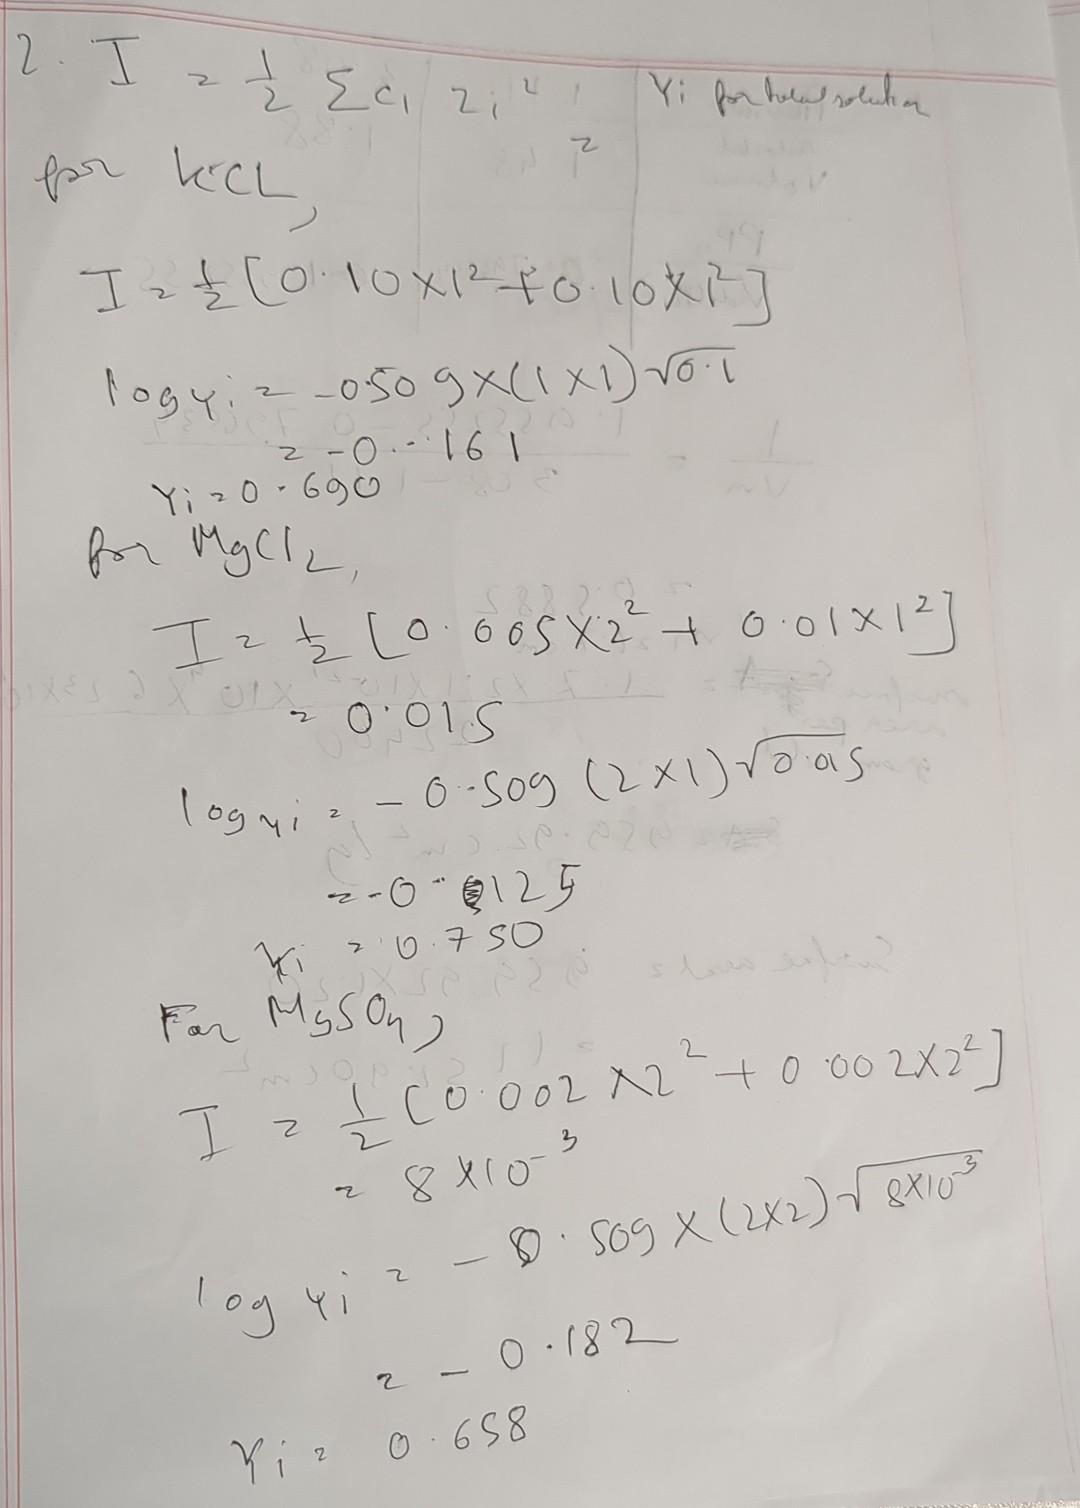 2. I = 1/2 Σ ci zi² γi for total solution
=
for KCL,
I = 1/2 [0.10×1² + 0.10×1²]
log γi = -0.509×(1×1)√0.1
= -0.161
γi = 0.690
for MgCl2,
I = 1/2 [0.005×2² + 0.01×1²]
= 0.015
log γi = -0.509 (2×1)√0.015
= -0.125
γi = 0.750
For MgSO4,
I = 1/2 [0.002×2² + 0.002×2²]
= 8×10⁻³
log γi = -0.509×(2×2)√8×10⁻³
= -0.182
γi = 0.658